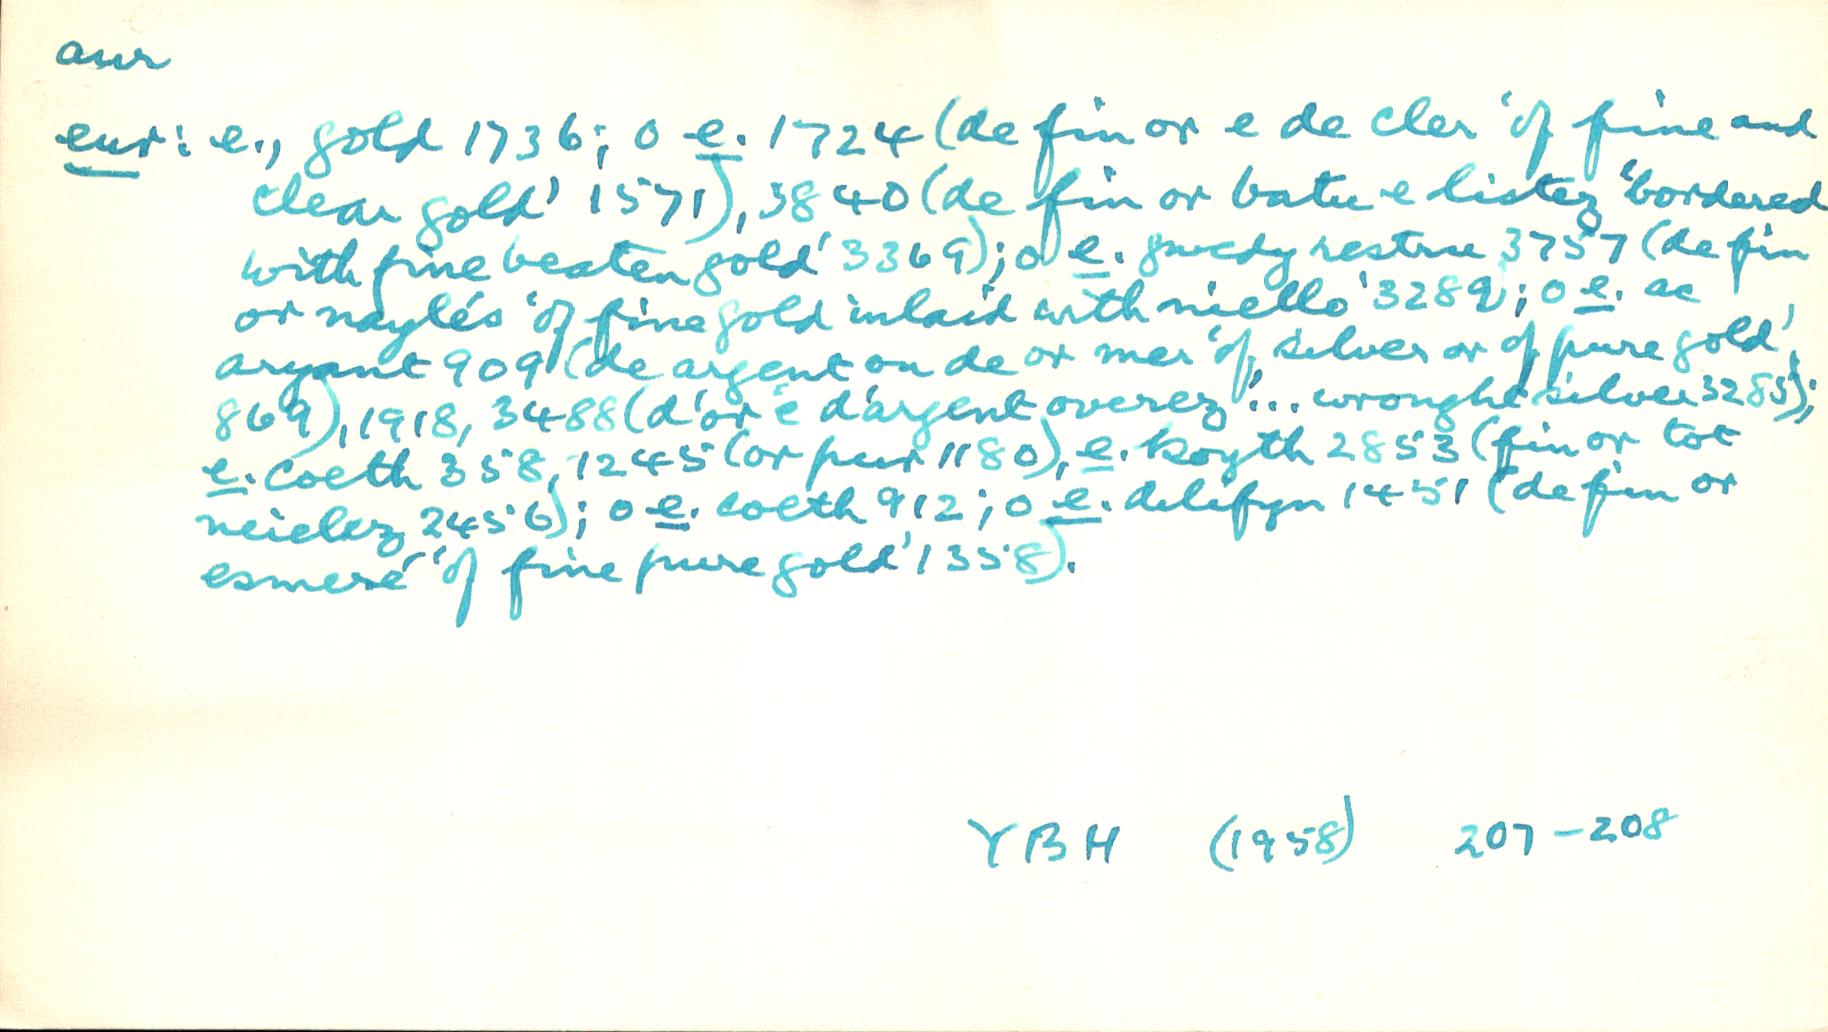 aur
eur: e., gold 1736; o e. 1724 (de fin or e de cler 'of fine and
clear gold' 1571), 3840 (de fin or batu e listez 'bordered
with fine beaten gold' 3369); o e. gwedy restru 3757 (de fin
or naylés 'of fine gold inlaid with niello' 3289; o e. ac
aryant 909 (de argent ou de or mer 'of silver or of pure gold',
869), 1918, 3488 (d'or e d'argent overez '... wrought silver 3285);
e. coeth 358, 1245 (or pur 1180), e. koyth 2853 (fin or tot
neielez 2456); o e. coeth 912; o e. dilifyn 1451 (de fin or
esmeré 'of fine pure gold' 1358).
YBH (1958) 207-208